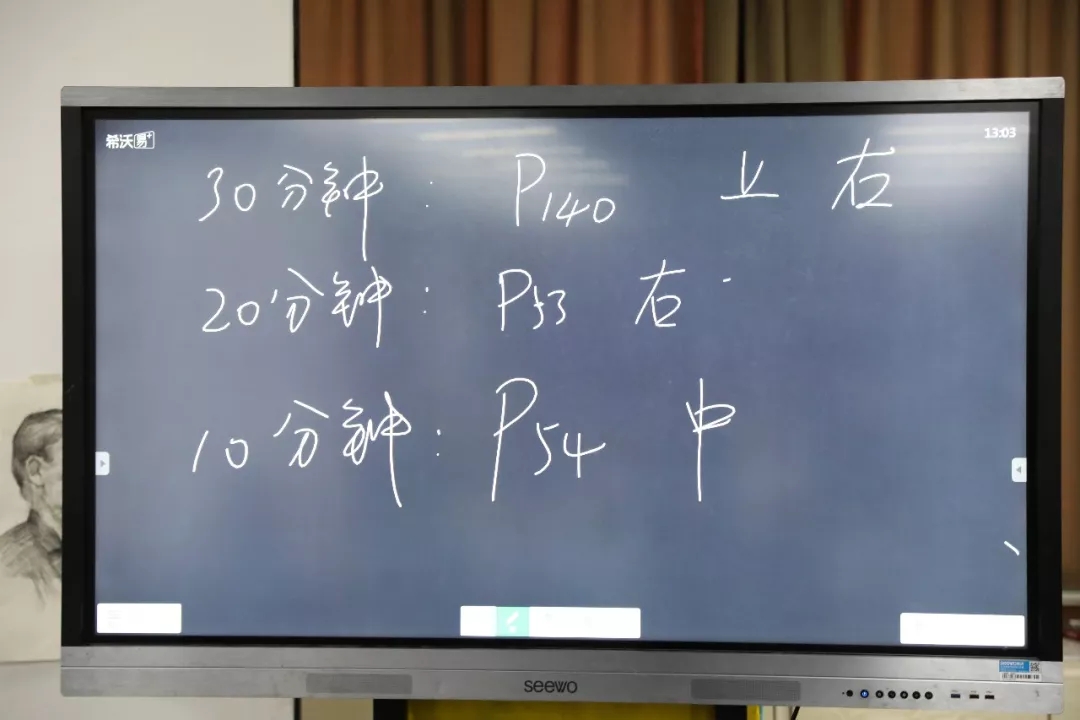 希沃易+
13:03
30分钟: P140 上 右
20分钟: P53 右
10分钟: P54 中
seewo